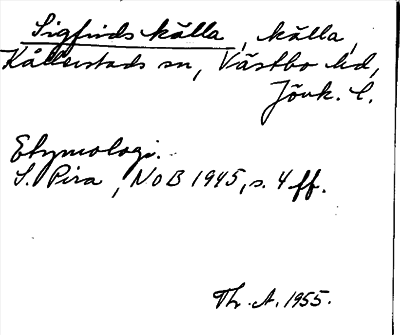 Sigfridskälla, källa,
Kållerstads sn, Västbo hd,
Jönk. l.
Etymologi.
S. Pira, NoB 1945, s. 4 ff.
Th. A. 1955.